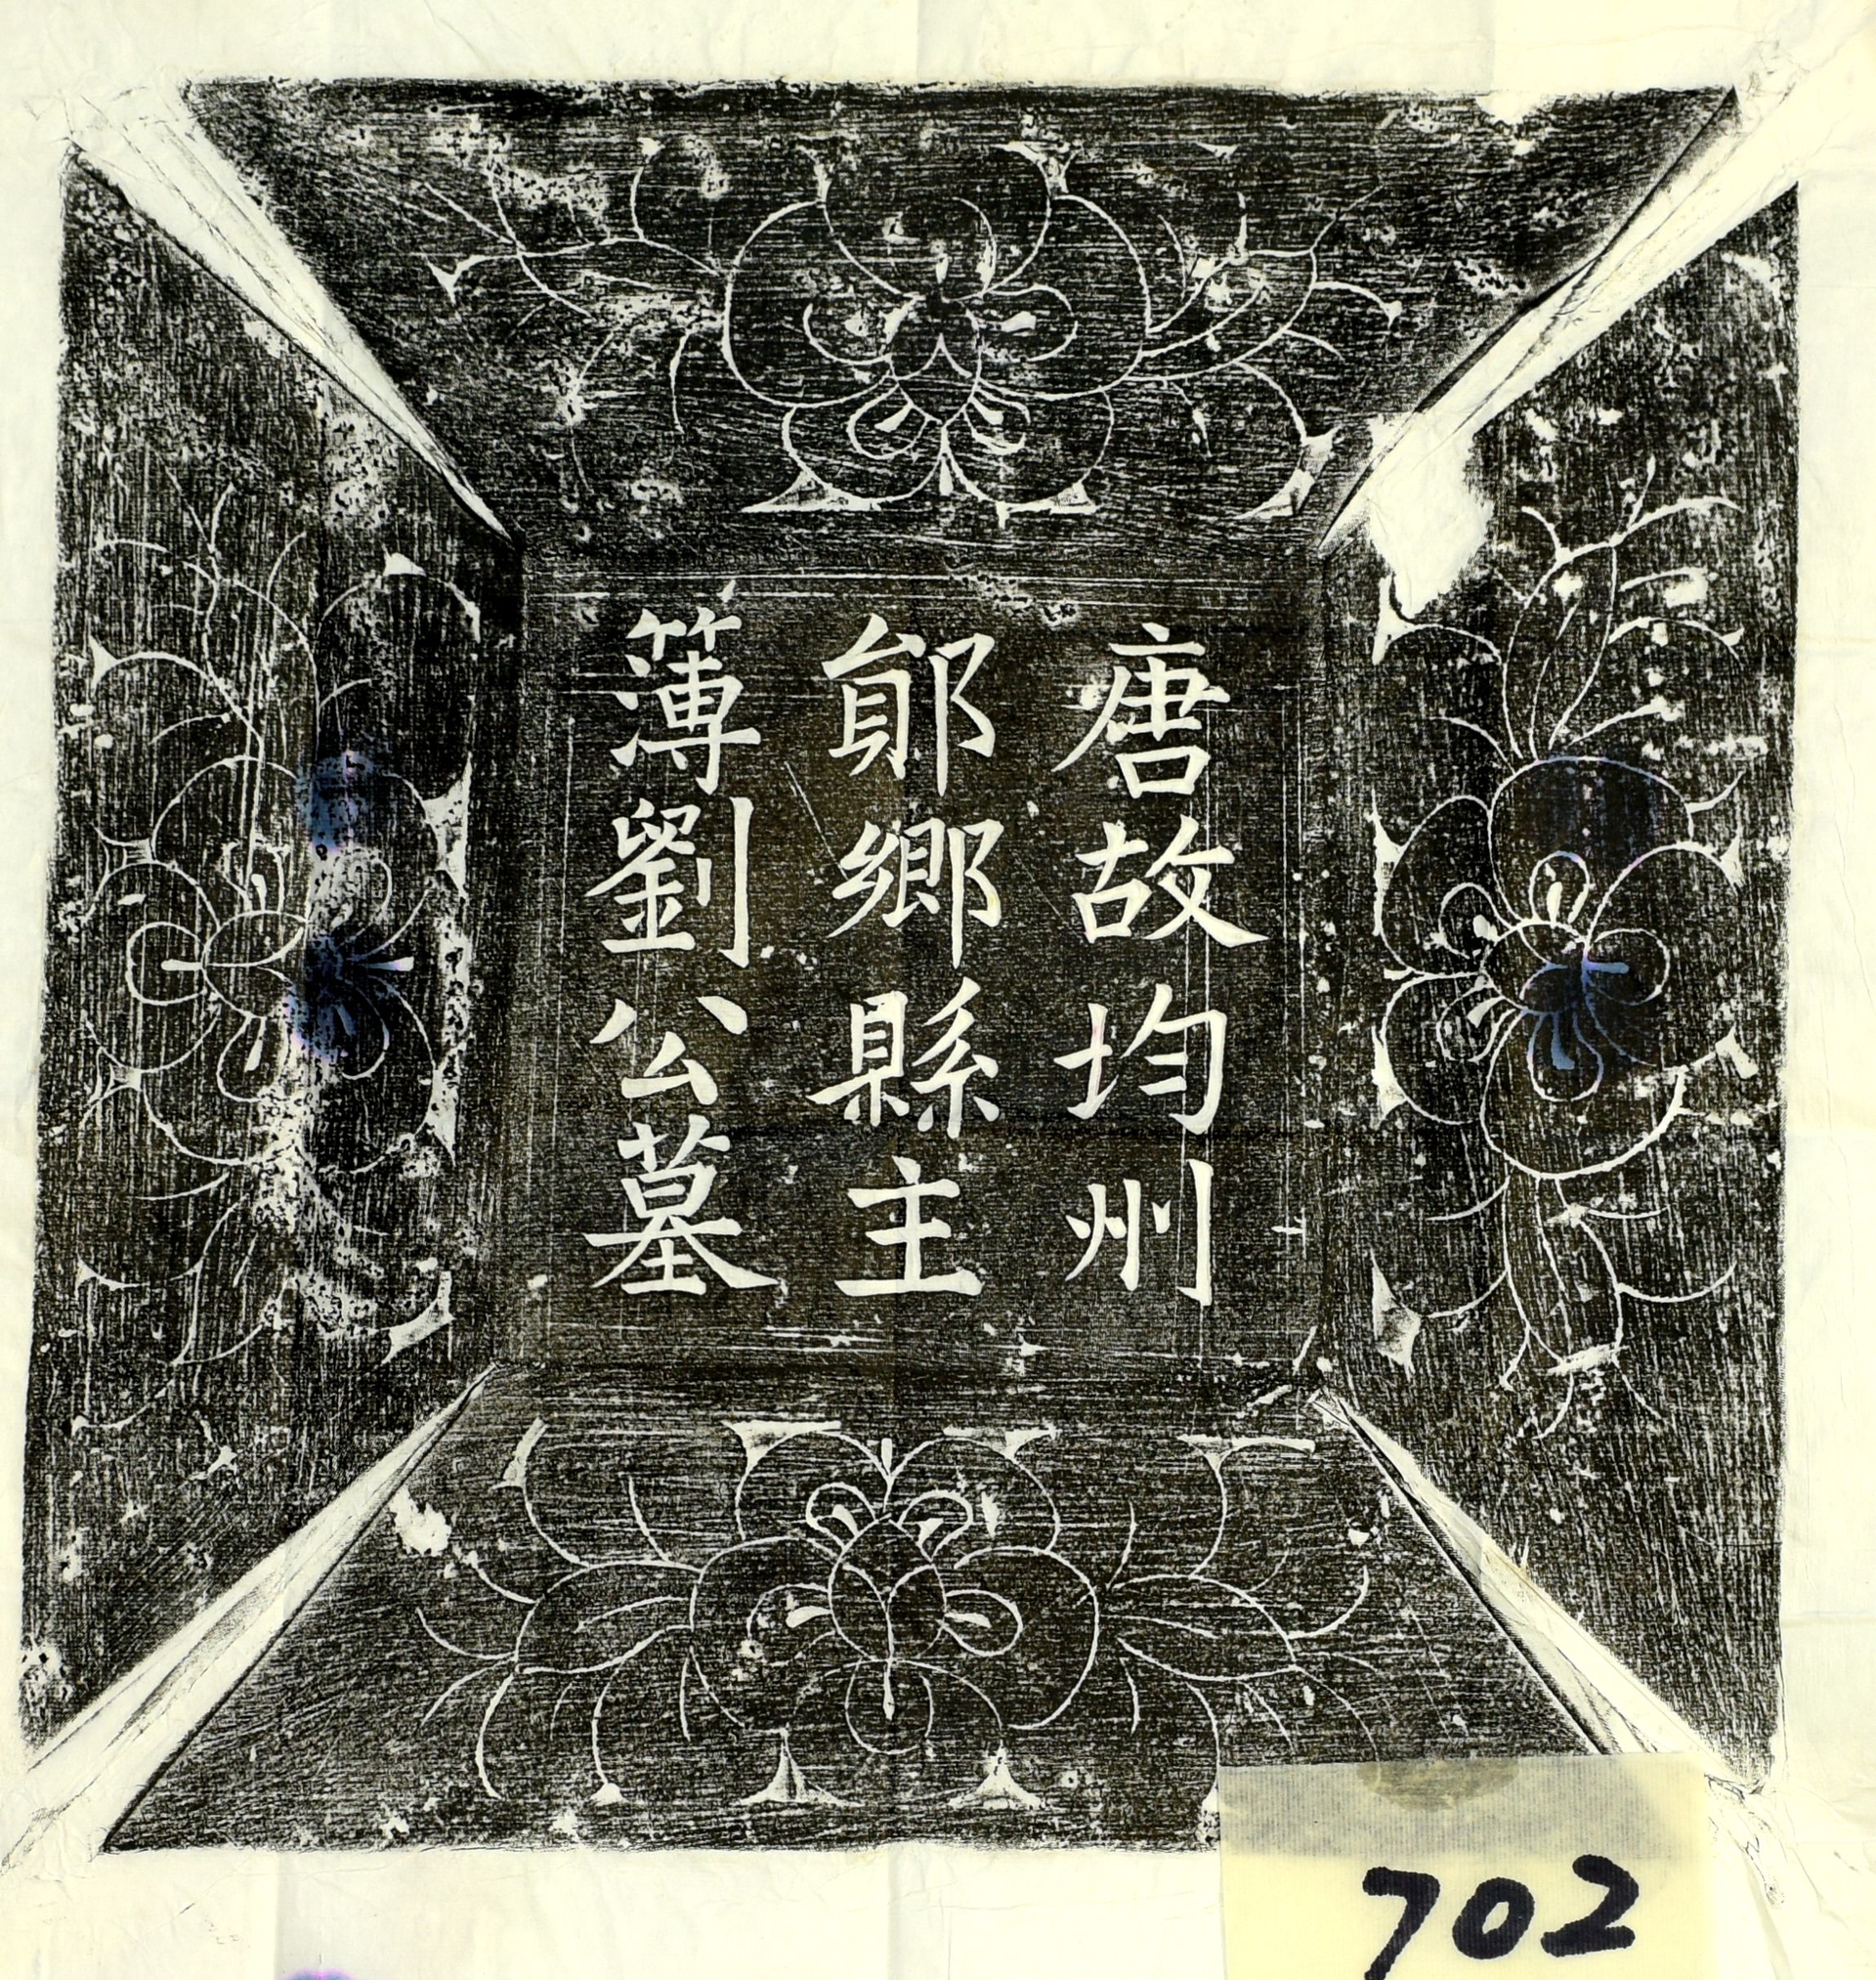 唐故均州
鄖鄉縣主
簿劉公墓
702